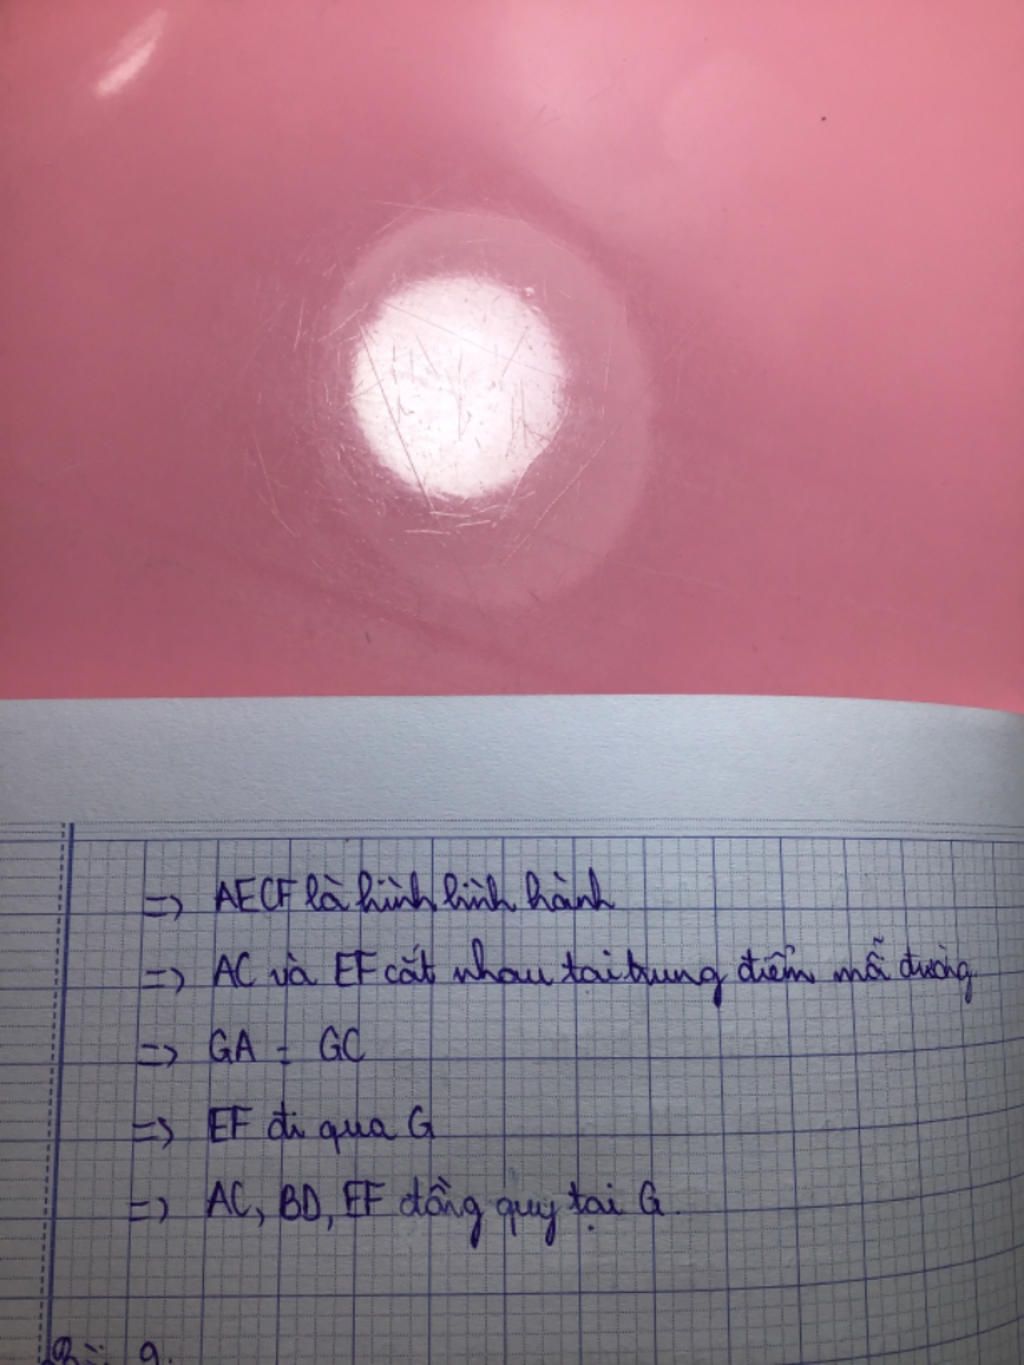 => AECF là hình bình hành
=> AC và EF cắt nhau tại trung điểm mỗi đường
=> GA = GC
=> EF đi qua G
=> AC, BD, EF đồng quy tại G.
Bài 9.